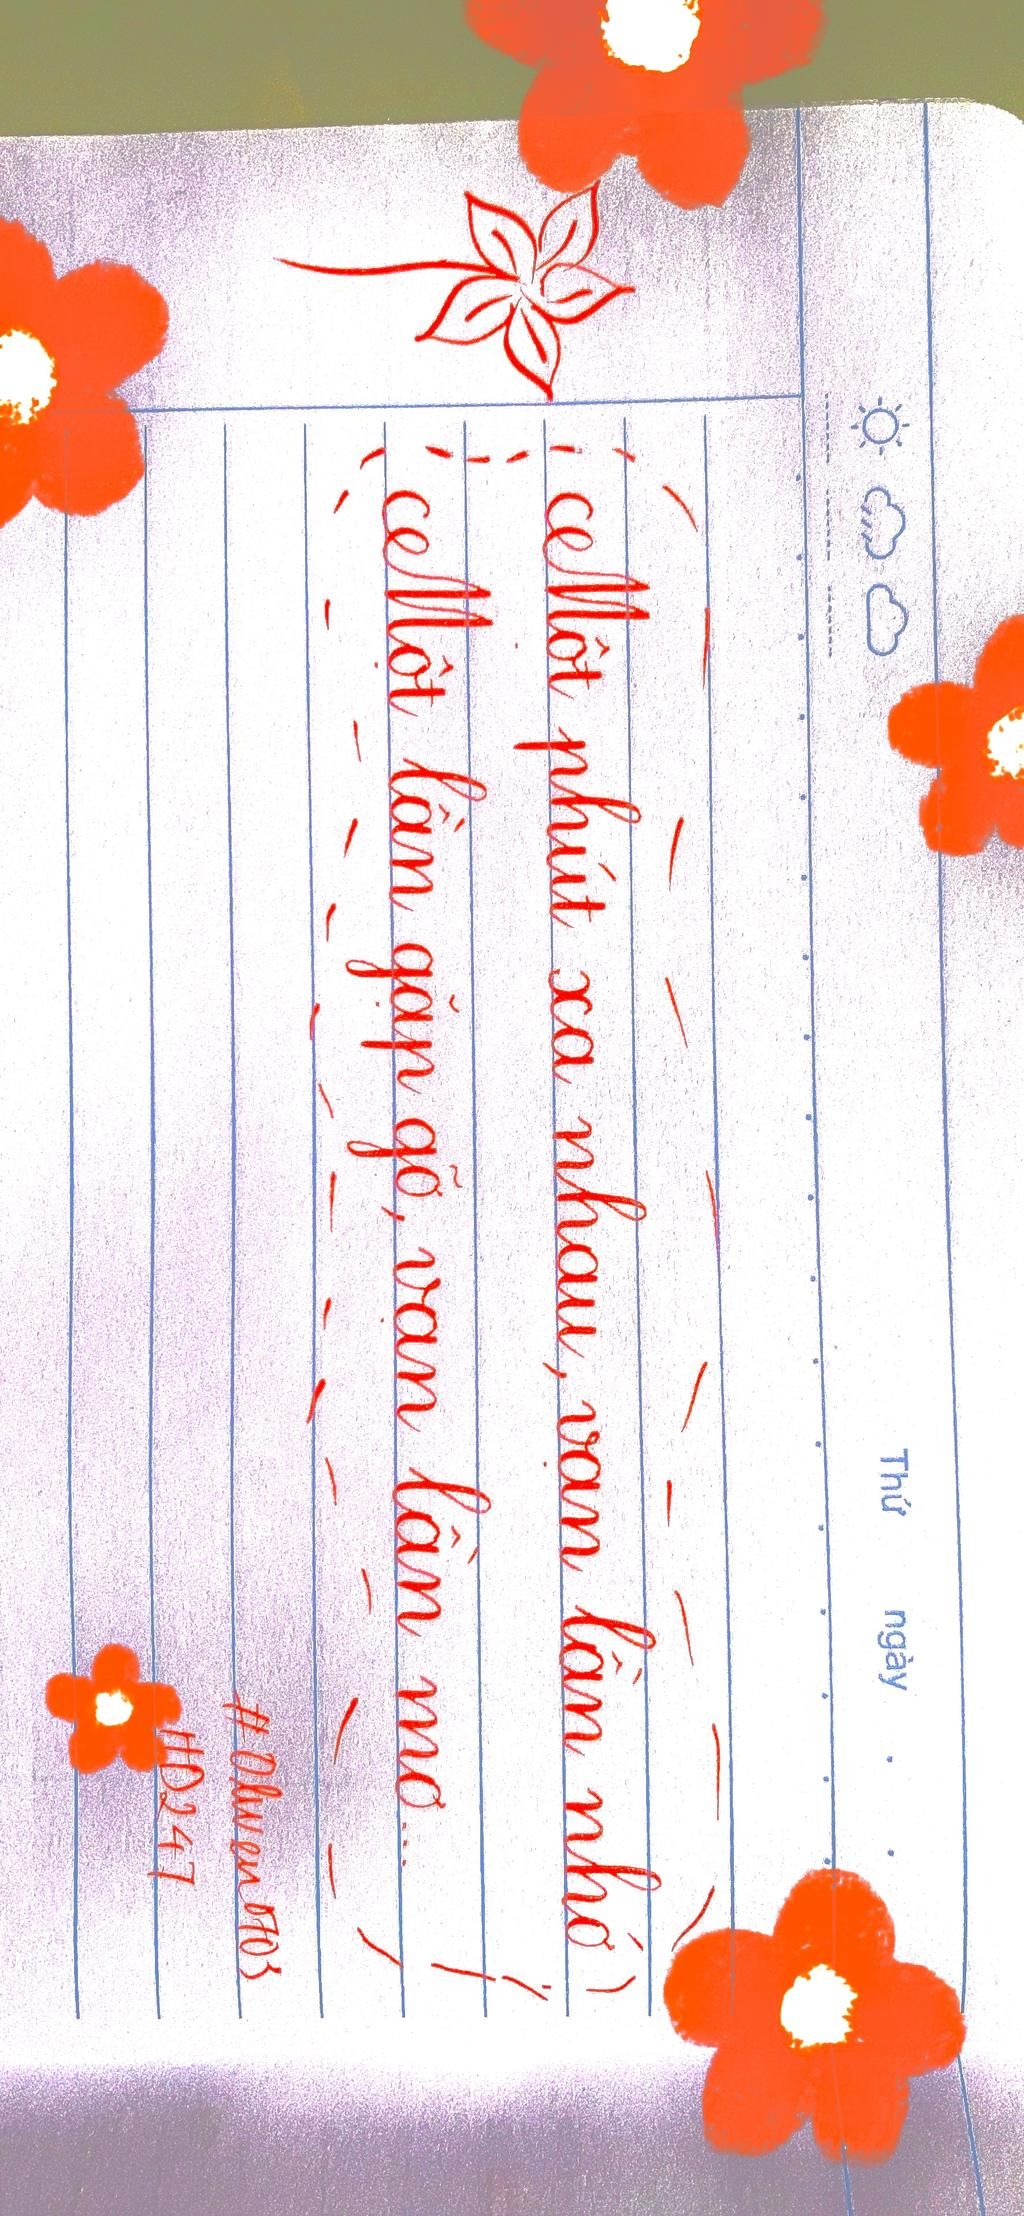 Thứ ngày . .
Một phút xa nhau, vạn lần nhớ
Một lần gặp gỡ, vạn lần mơ...
#HD247